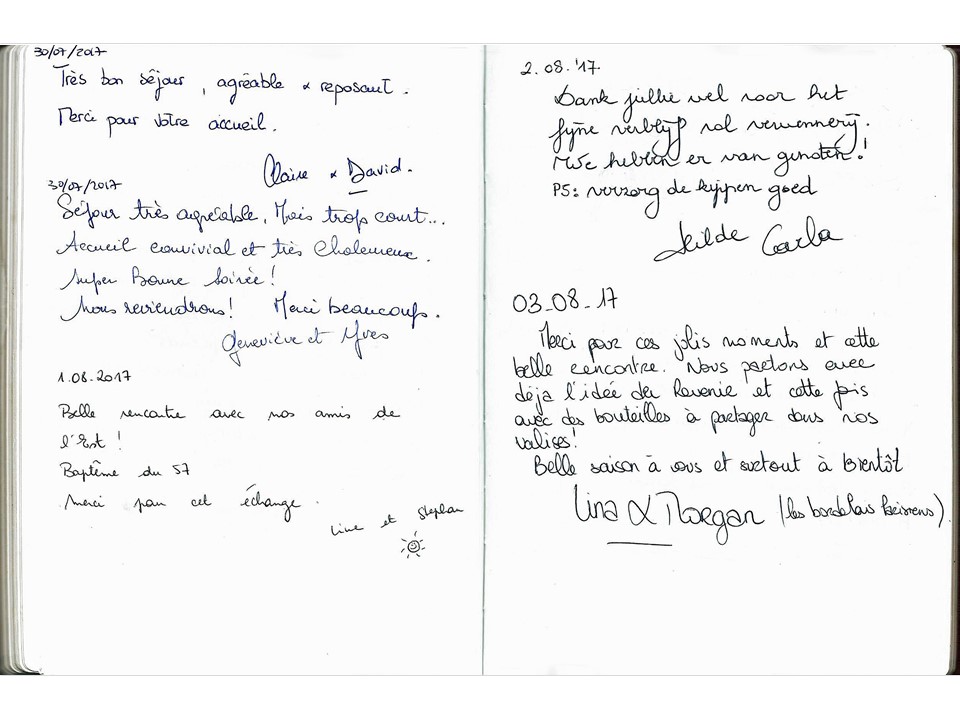 30/07/2017
Très bon séjour, agréable & reposant.
Merci pour votre accueil.
Claire & David.
30/07/2017
Séjour très agréable, Mais trop court...
Accueil convivial et très chaleureux.
Super Bonne Soirée!
Nous reviendrons! Merci beaucoup.
Geneviève et Yves
1.08.2017
Belle rencontre avec nos amis de
l'Est!
Baptême du 57
Merci pour cet échange.
Line et Stephan
2.08.'17
Dank jullie wel voor het
fijne verblijf vol verwennerij.
We hebben er van genoten!
PS: verzorg de kippen goed
Hilde Carla
03-08-17
Merci pour ces jolis moments et cette
belle rencontre. Nous partons avec
déja l'idée de Revenir et cette fois
avec des bouteilles à partager dans nos
valises!
Belle saison à vous et surtout à Bientôt
Lina & Morgan (les bordelais